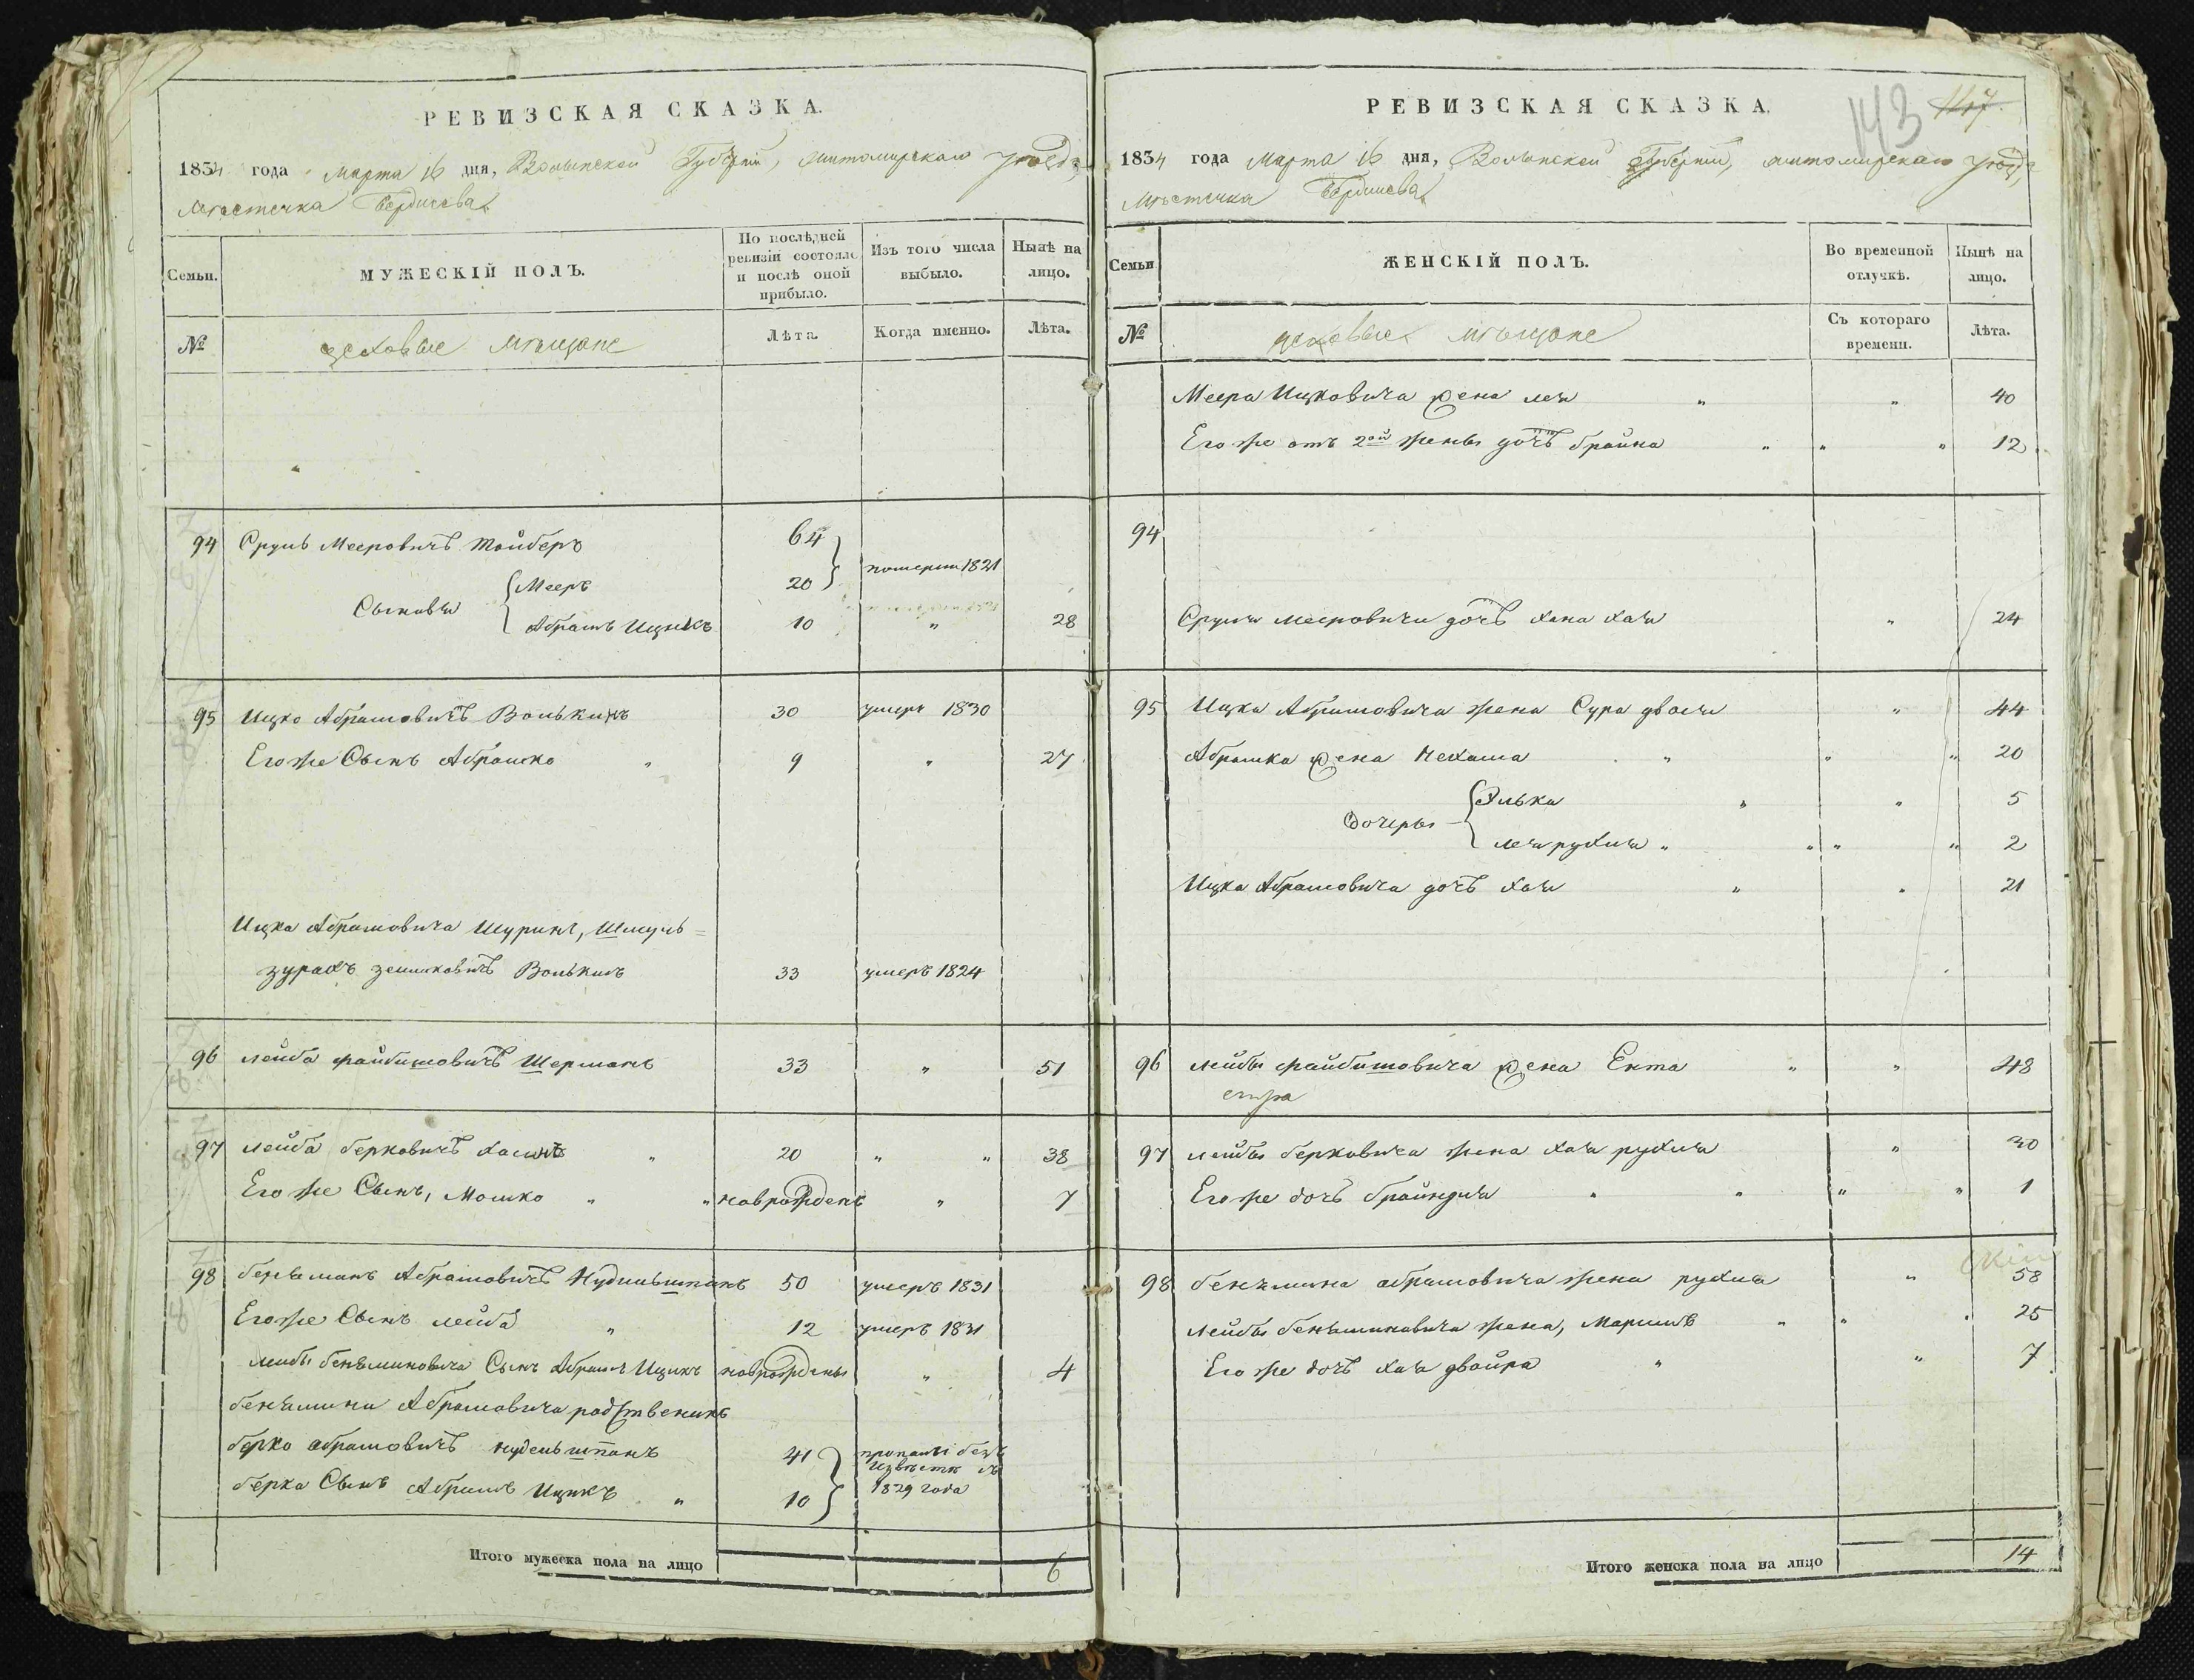 РЕВИЗСКАЯ СКАЗКА.
1834 года Марта 16 дня, Волынской Губерніи, Житомирскаго уѣзда,
Мѣстечка Бердичева
Семьи.
МУЖЕСКІЙ ПОЛЪ.
По послѣдней ревизіи состояло и послѣ оной прибыло.
Изъ того числа выбыло.
Нынѣ на лицо.
№
цеховые мѣщане
Лѣта.
Когда именно.
Лѣта.
94 Сруль Мееровичъ Тайберъ 64
Сыновья Мееръ 20 померли 1821
Абрамъ Ицикъ 10 " 28
95 Ицко Абрамовичъ Волькинъ 30 умеръ 1830
Его же Сынъ Абрамко " 9 " 27
Ицка Абрамовича Шуринъ, Шмуль=
зурахъ Волькинъ 33 умеръ 1824
96 Лейба Файбишовичъ Шерманъ 33 " 51
97 Лейба Берковичъ " 20 " " 38
Его же Сынъ, Мошко " " новорожденъ " 7
98 Беньяминъ Абрамовичъ 50 умеръ 1831
Его же Сынъ Лейба " 12 умеръ 1831
Лейбы Беньяминовича Сынъ Абрамъ Ицикъ новорожденъ " 4
Беньямина Абрамовича родственникъ
Берко Абрамовичъ 41 пропали безъ
извѣстн съ
Берка Сынъ Абрамъ Ицикъ " 10 1829 года
Итого мужеска пола на лицо 6
РЕВИЗСКАЯ СКАЗКА.
143 117
1834 года Марта 16 дня, Волынской Губерніи, Житомирскаго уѣзда,
Мѣстечка Бердичева
Семьи
ЖЕНСКІЙ ПОЛЪ.
Во временной отлучкѣ.
Нынѣ на лицо.
№
цеховые мѣщане
Съ котораго времени.
Лѣта.
Меера Ицковича жена Лея " " 40
Его же отъ 2ой жены дочь Брайна " " " 12
94
Сруля Мееровича дочь Хана Хая " 24
95 Ицка Абрамовича жена Сура Двося " 44
Абрамка жена Нехама " " " 20
Дочеры Элька " " 5
Лея Рухля " " " " 2
Ицка Абрамовича дочь Хая " " 21
96 Лейбы Файбишовича жена Ента " " 48
97 Лейбы Берковича жена Хая Рухля " 30
Его же дочь Брайндля " " " " 1
98 Беньямина Абрамовича жена Рухля " 58
Лейбы Беньяминовича жена, Марьямъ " " " 25
Его же дочь Хая Двойра " " 7
Итого женска пола на лицо 14